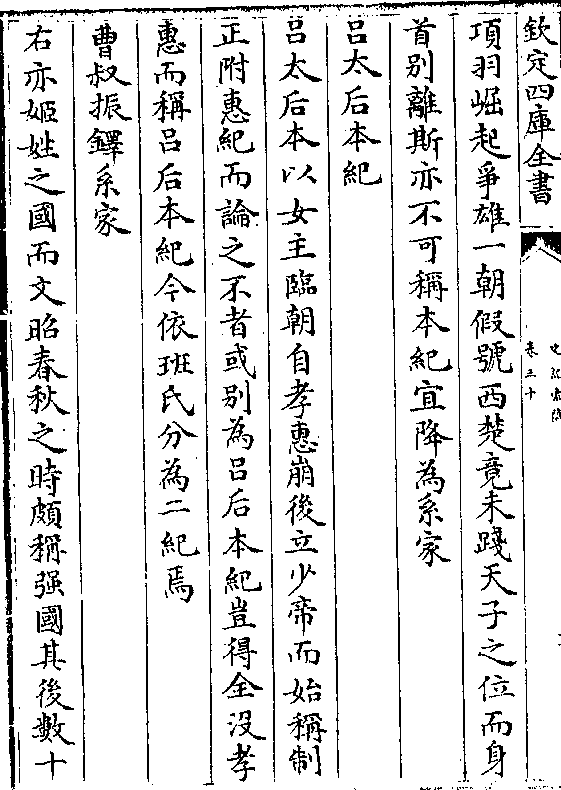 欽定四庫全書
史記索隱
卷三十
項羽崛起爭雄一朝假號西楚竟未踐天子之位而身
首别離斯亦不可稱本紀宜降為系家
吕太后本紀
吕太后本以女主臨朝自孝惠崩後立少帝而始稱制
正附惠紀而論之不者或别為吕后本紀豈得全没孝
惠而稱吕后本紀今依班氏分為二紀焉
曹叔振鐸系家
右亦姬姓之國而文昭春秋之時頗稱强國其後數十